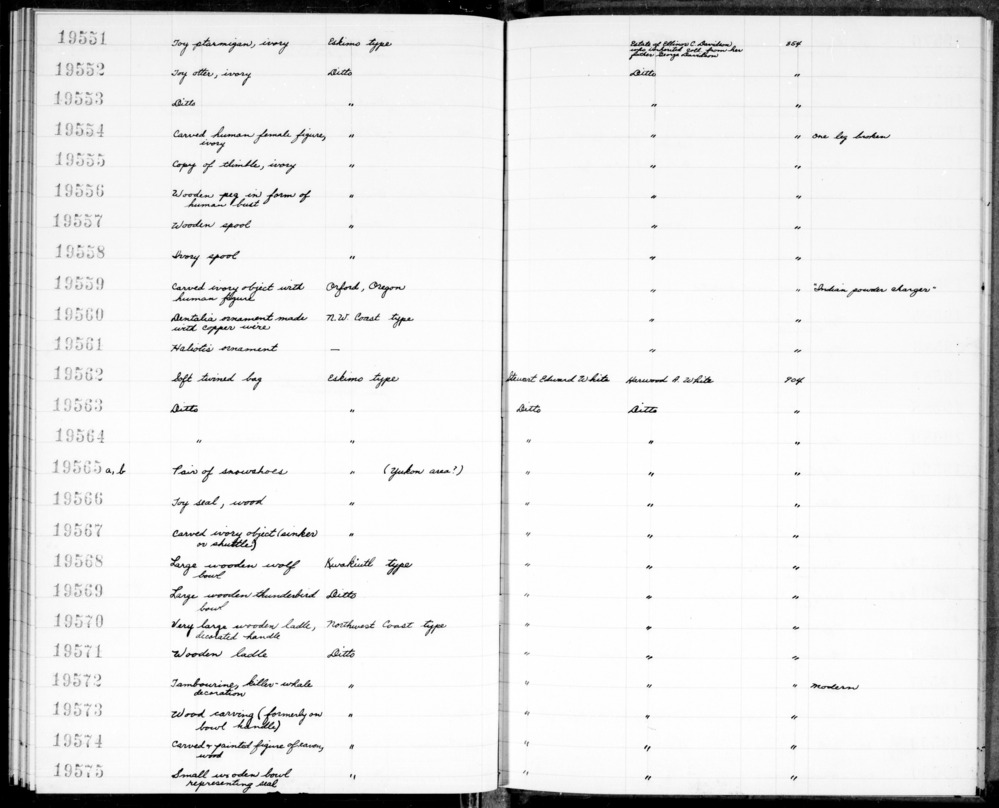 19551 Toy ptarmigan, ivory Eskimo type Estate of Ellinor C. Davidson 254
who inherited coll. from her
father George Davidson
19552 Toy otter, ivory Ditto Ditto "
19553 Ditto " " "
19554 Carved human female figure, " " " one leg broken
ivory
19555 Copy of thimble, ivory " " "
19556 Wooden peg in form of " " "
human bust
19557 Wooden spool " " "
19558 Ivory spool " " "
19559 Carved ivory object with Orford, Oregon " " "Indian powder charger"
human figure
19560 Dentalia ornament made N.W. Coast type " "
with copper wire
19561 Haliotis ornament — " "
19562 Soft twined bag Eskimo type Stewart Edward White Harwood A. White 904
19563 Ditto " Ditto Ditto "
19564 " " " " "
19565 a, b Pair of snowshoes " (Yukon area?) " " "
19566 Toy seal, wood " " " "
19567 Carved ivory object (sinker " " " "
or shuttle?)
19568 Large wooden wolf Kwakiutl type " " "
bowl
19569 Large wooden thunderbird Ditto " " "
bowl
19570 Very large wooden ladle, Northwest Coast type " " "
decorated handle
19571 Wooden ladle Ditto " " "
19572 Tambourine, killer-whale " " " " modern
decoration
19573 Wood carving (formerly on " " " "
bowl handle)
19574 Carved + painted figure of " " " "
wood
19575 Small wooden bowl " " " "
representing seal